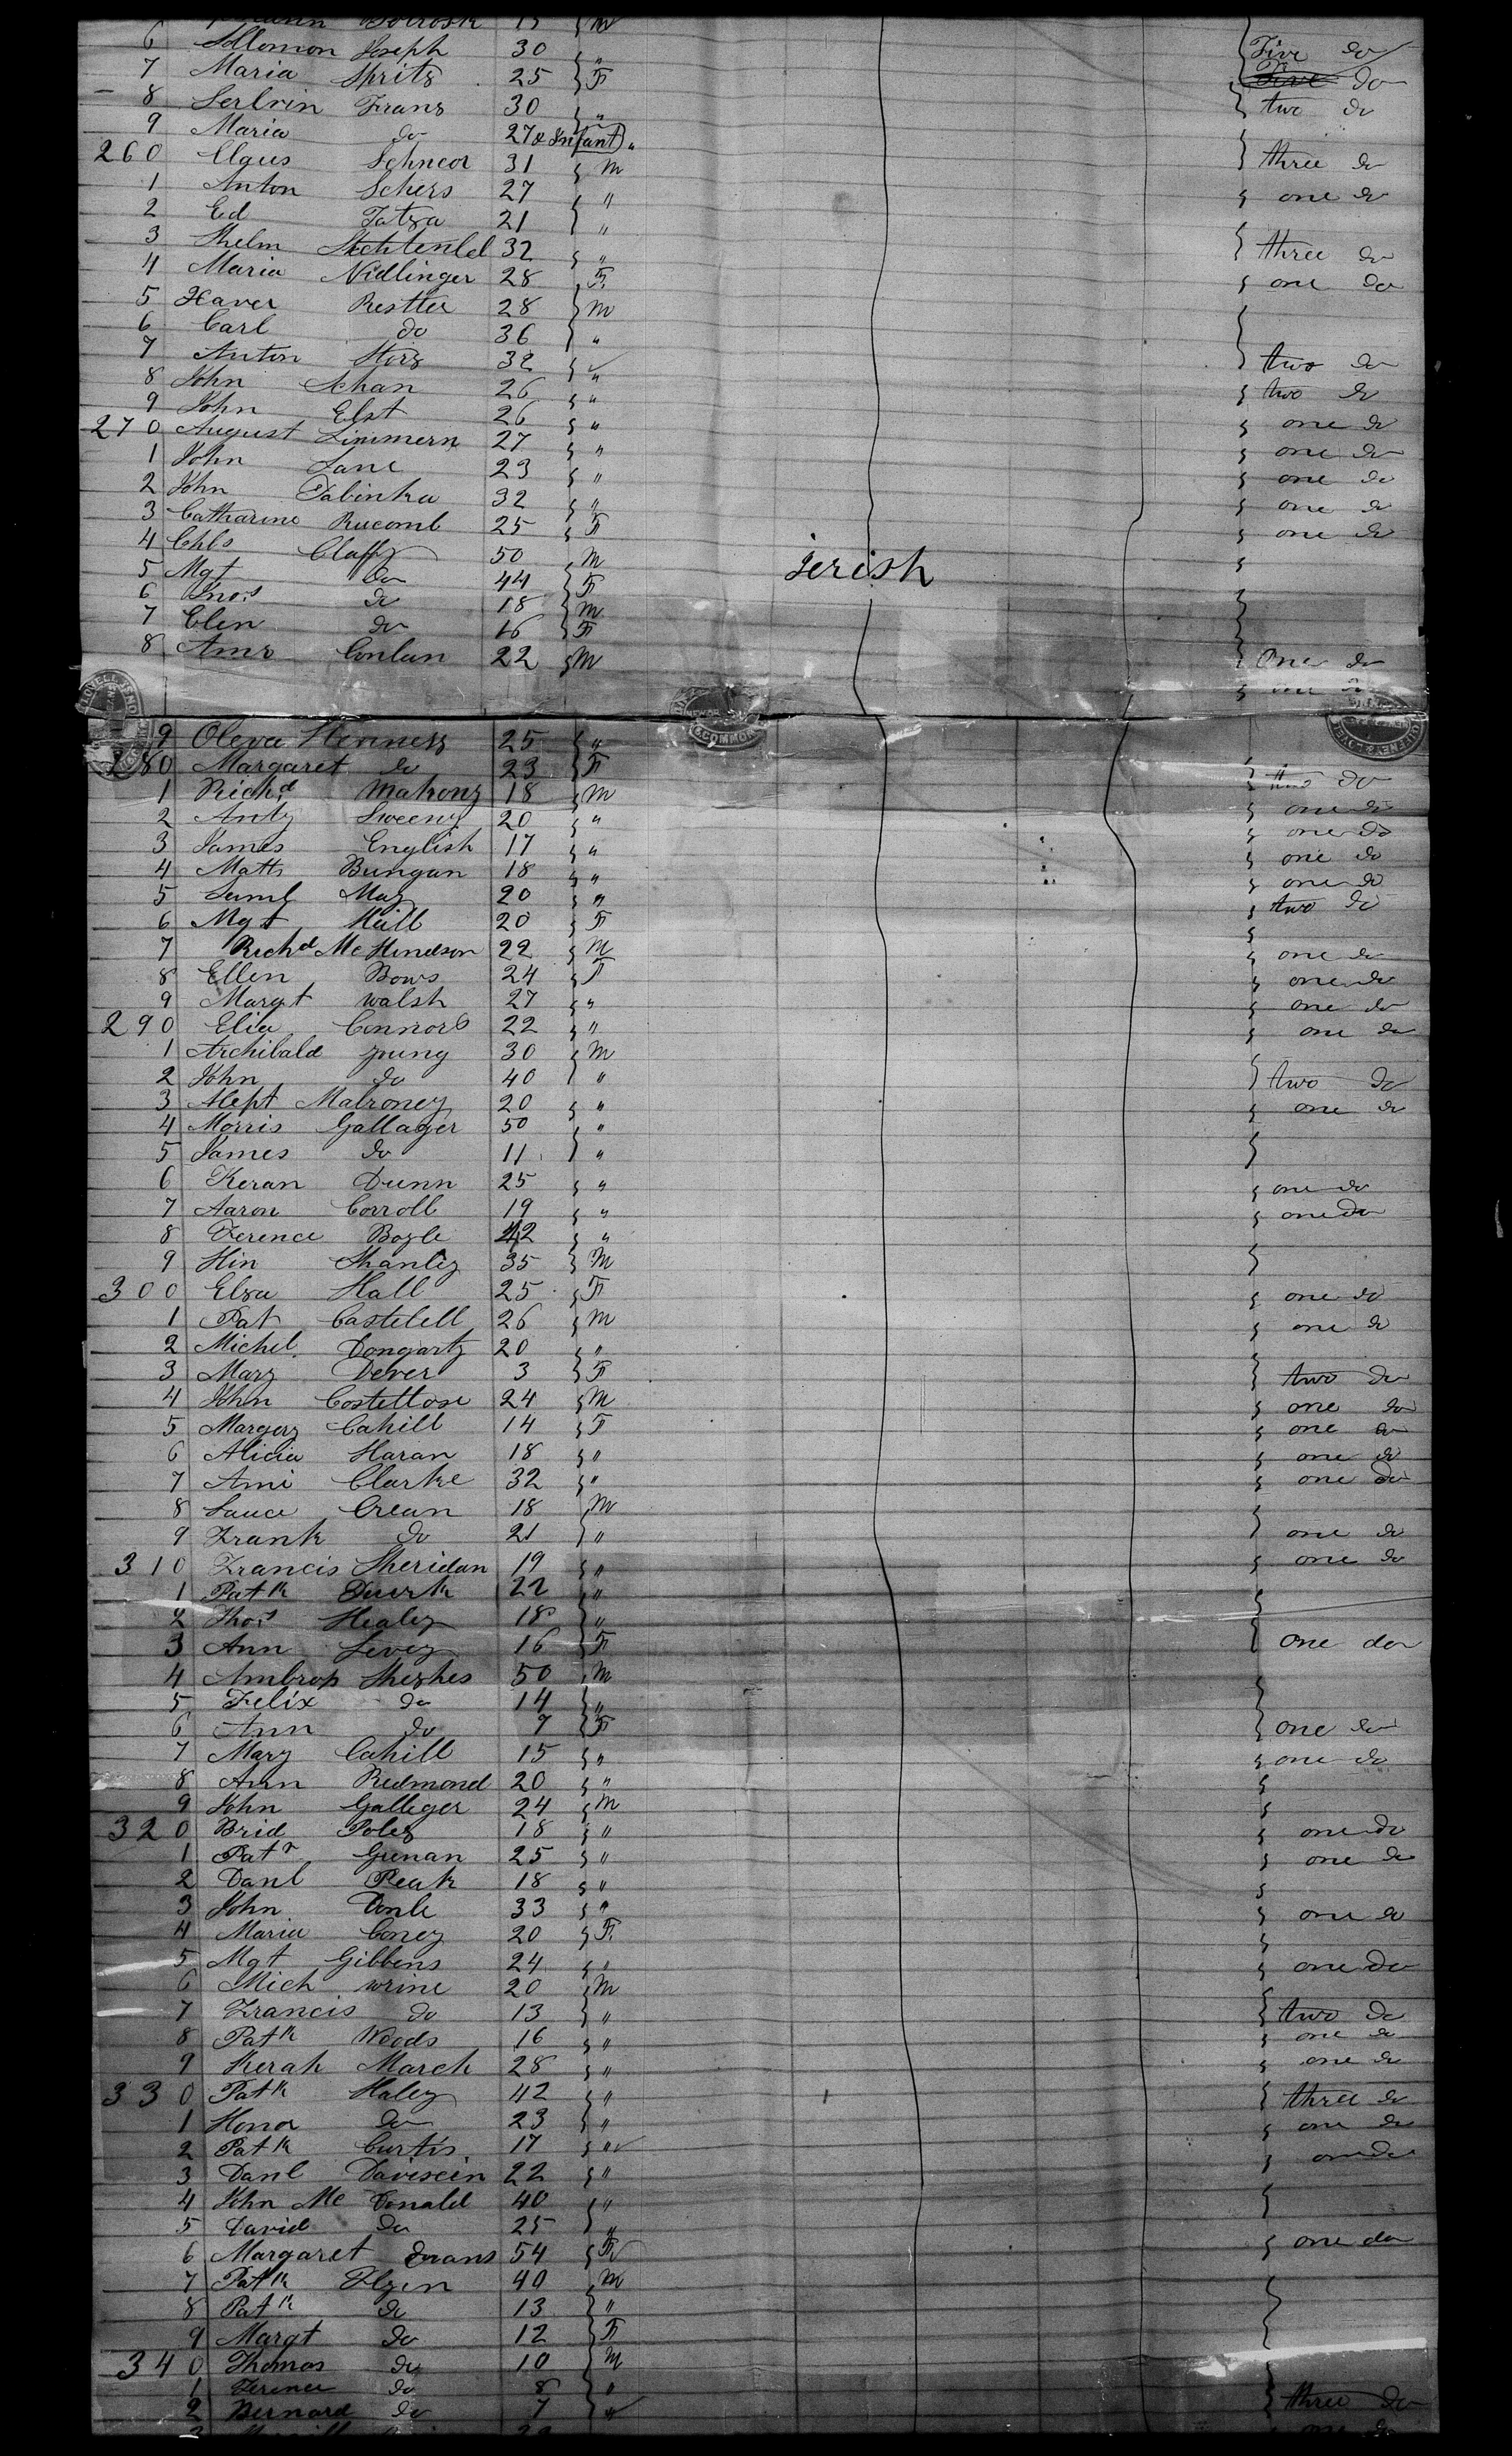 6 Sollomon Joseph 30 " Five do
7 Maria Spritz 25 F do
8 Serlvin Franz 30 " two do
9 Maria do 27 & Infant "
260 Claus Schneor 31 M three do
1 Anton Schers 27 " one do
2 Ed Tatza 21 "
3 Shelm 32 " three do
4 Maria Nidlinger 28 F. one do
5 Xaver Restter 28 M
6 Carl do 36 "
7 Anton Storz 32 " two do
8 John Schan 26 " two do
9 John Elst 26 " one do
270 August Zimmern 27 " one do
1 John Lane 23 " one do
2 John Tabinka 32 " one do
3 Catharine Rucomb 25 F one do
4 Chls Claffy 50 M
jerish
5 Mgt do 44 F
6 Thos do 18 M
7 Elen do 16 F
8 Amr Conlan 22 M One do
one do
9 Oleva Henness 25 "
280 Margaret do 23 F two do
1 Richd Malrony 18 M one do
2 Anty Sweeny 20 " one do
3 James English 17 " one do
4 Matts Bungan 18 " one do
5 Saml May 20 " two do
6 Mgt Hall 20 F
7 Richd Mc Hendson 22 M one do
8 Ellen Bows 24 F one do
9 Margt Walsh 27 " one do
290 Elia Connors 22 " one do
1 Archibald young 30 M
2 John do 40 " two do
3 Alept Malroney 20 " one do
4 Morris Gallager 50 "
5 James do 11 "
6 Keran Dunn 25 " one do
7 Aaron Corroll 19 " one do
8 Ference Bogle 42 "
9 Hin Shanley 35 M
300 Elza Hall 25 F one do
1 Pat Castelell 26 M one do
2 Michel. Dongarty 20 "
3 Mary Dever 3 F two do
4 John Costellose 24 M one do
5 Margery Cahill 14 F one do
6 Alicia Haran 18 " one do
7 Ami Clarke 32 " one do
8 Lauce Crean 18 M
9 Frank do 21 " one do
310 Francis Sheridan 19 " one do
1 Patk Durk 22 "
2 Thos Healey 18 "
3 Ann Levey 16 F One do
4 Ambrop Sheshes 50 M
5 Felix do 14 "
6 Ann do 7 F one do
7 Mary Cahill 15 " one do
8 Ann Redmond 20 "
9 John Galleger 24 M
320 Brid Poley 18 " one do
1 Patr Gunan 25 " one do
2 Danl Peak 18 "
3 John Donle 33 " one do
4 Maria Coney 20 F.
5 Mgt Gibbens 24 " one do
6 Mich wrine 20 M
7 Francis do 13 " two do
8 Patk Woods 16 " one do
9 Kerah March 28 " one do
330 Patk Haley 42 " three do
1 Honor do 23 " one do
2 Patk Curtis 17 " one do
3 Danl Daviscin 22 "
4 John Mc Donald 40 "
5 David do 25 "
6 Margaret Evans 54 F one do
7 Patk Flyen 40 M
8 Patk do 13 "
9 Margt do 12 F
340 Thomas do 10 M
1 Ference do 8 "
2 Bernard do 7 " three do
one do